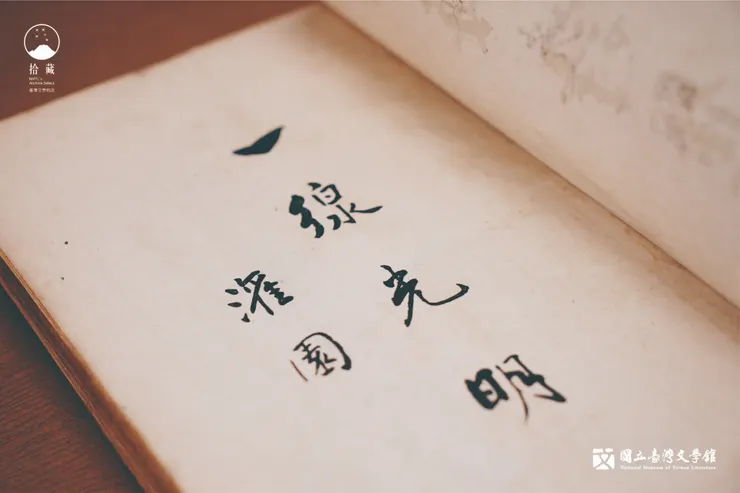 拾藏
臺灣文學物語
一線光明
灌園
國立臺灣文學館
National Museum of Taiwan Literature